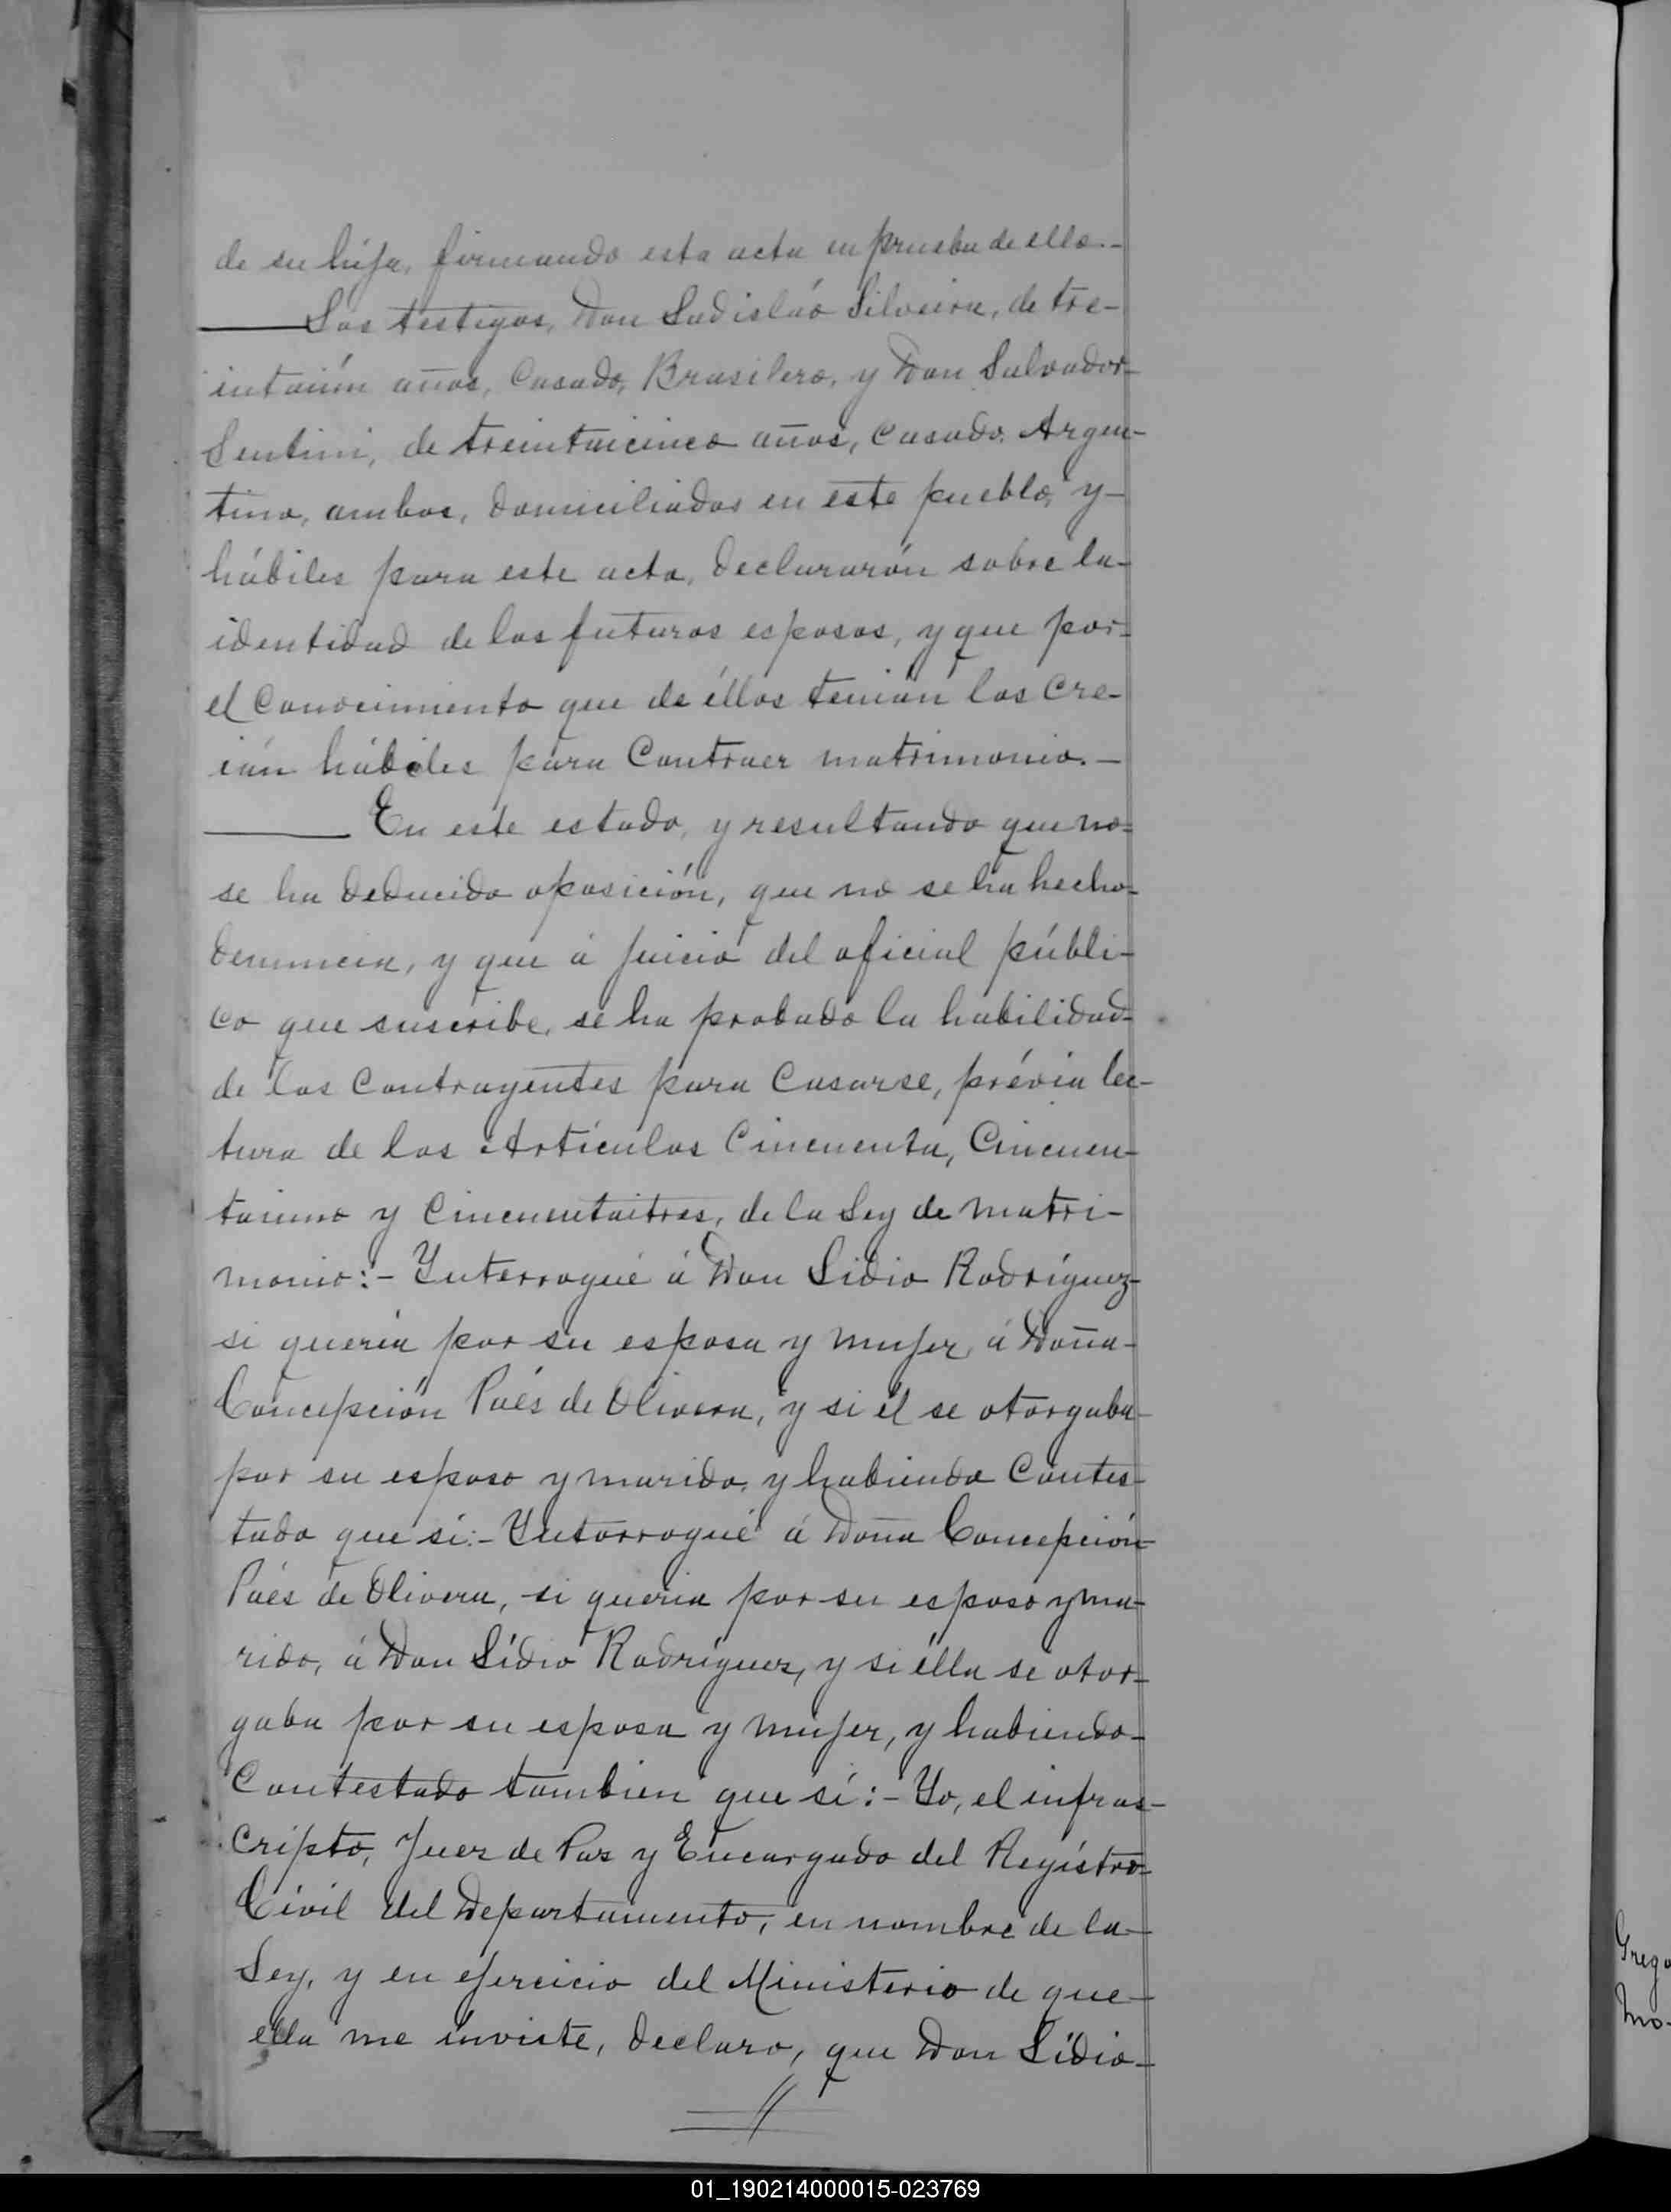 de su hija, firmando esta acta en prueba de ello.-
Los testigos, Don Ladisláo Silveira, de tre-
intaiún años, Casado, Brasilero, y Don Salvador-
Sentini, de treintaicinco años, casado, Argen-
tino, ambos, domiciliados en este pueblo, y-
hábiles para este acto, declararón sobre la-
identidad de los futuros esposos, y que por-
el Conocimiento que de éllos tenían los Cre-
ián hábiles para Contraer matrimonio.-
En este estado, y resultando que no-
se ha deducido oposición, que no se ha hecho-
denuncia, y que á juicio del oficial públi-
co que suscribe, se ha probado la habilidad-
de los Contrayentes para Casarse, prévia lec-
tura de los Artículos Cincuenta, Cincuen-
taiuno y Cincuentaitres, de la Ley de Matri-
monio:- Interrogué á Don Lidio Rodríguez-
si quería por su esposa y mujer, á Doña-
Concepción Paés de Olivera, y si él se otorgaba-
por su esposo y marido, y habiendo Contes-
tado que sí:- Interrogué á Doña Concepción-
Paés de Olivera, si quería por su esposo y ma-
rido, á Don Lídio Rodríguez, y si élla se otor-
gaba por su esposa y mujer, y habiendo-
Contestado tambien que sí:- Yo, el infras-
cripto, Juez de Paz y Encargado del Registro-
Civil del Departamento, en nombre de la-
Ley, y en ejercicio del Ministerio de que-
ella me inviste, declaro, que Don Lídio-
01_190214000015-023769